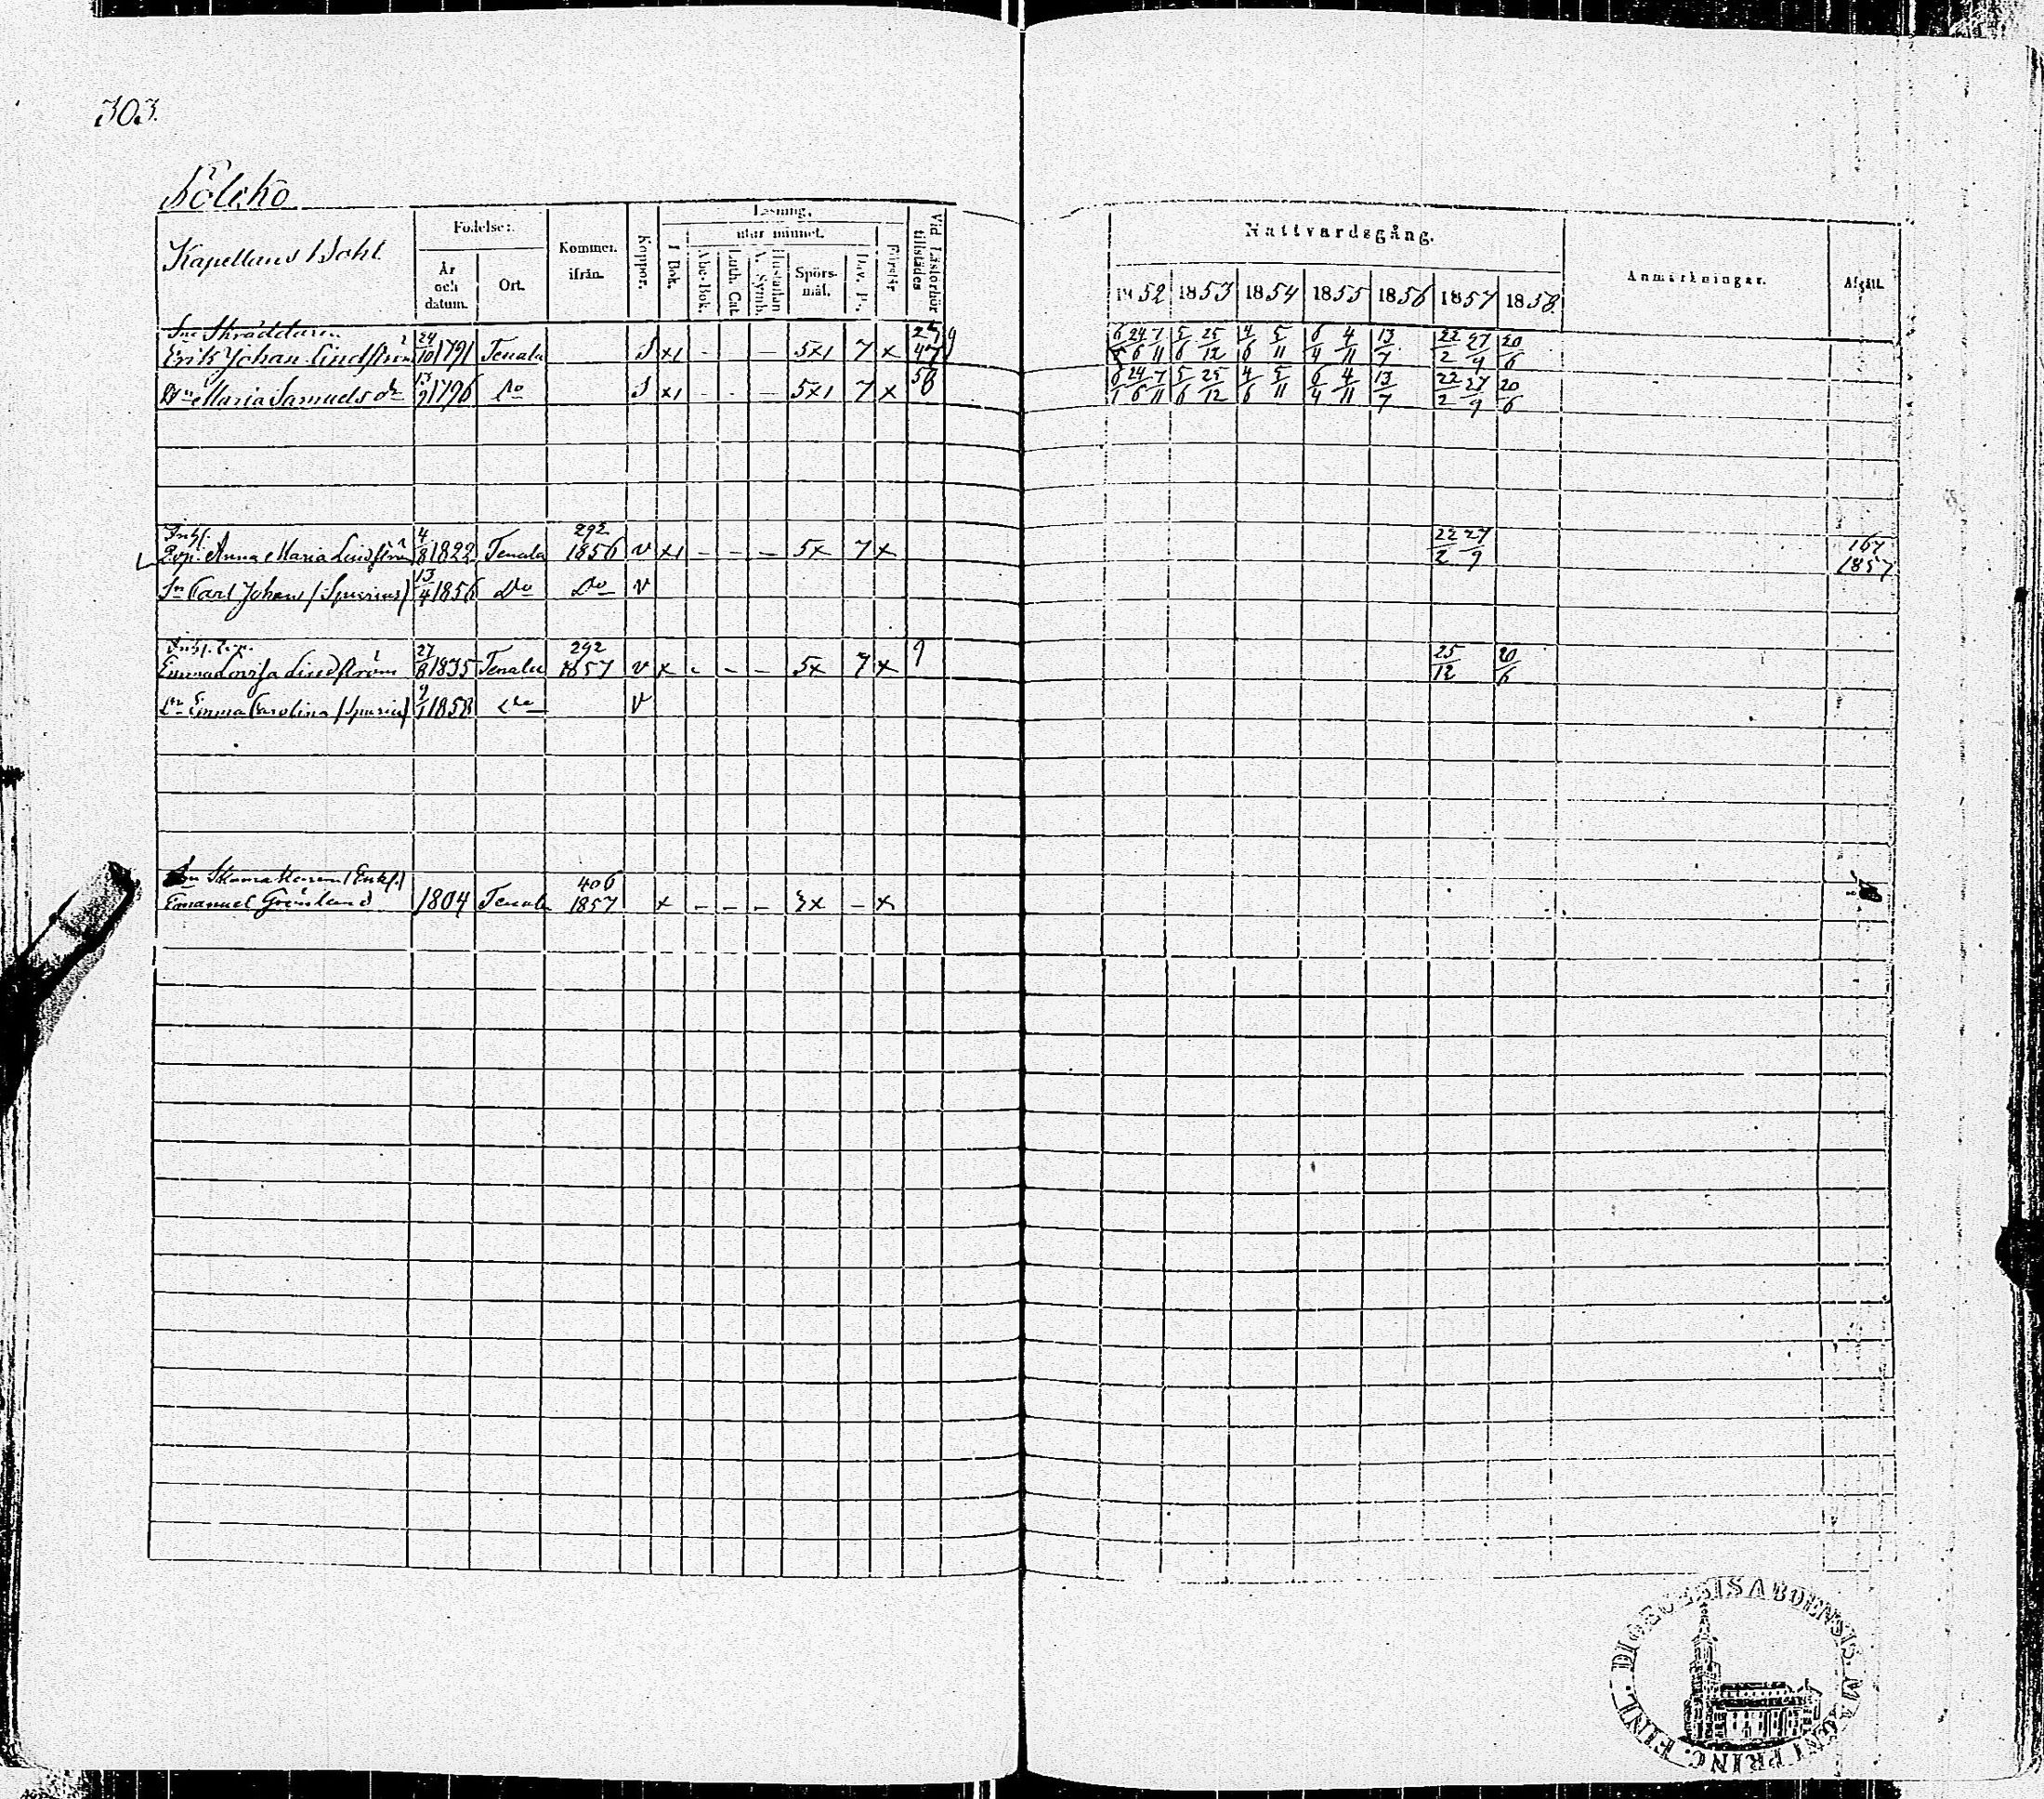 303.
Kapellans Bohl
Födelse:
År och datum.
Ort.
Kommer. ifrån.
Koppor.
Läsning.
I Bok.
utur minnet.
Abc-Bok.
Luth. Cat.
Hustaflan A. Symb.
Spörs-mål.
Dav. P.
Förstår
Vid Läsförhör tillstädes
Nattvardsgång.
1852 1853 1854 1855 1856 1857 1858
Anmärkningar.
Afgått.
Skräddaren
Erik Johan Lindström 24/10 1791 Tenala S x1 - — 5x1 7 x 47 6 24/6 7/11 5/6 25/12 4/6 5/11 6/4 4/11 13/7 22/2 27/9 20/6
Maria Samuelsdr 13/9 1796 Do S x1 - - — 5x1 7 x 56 6/1 24/6 7/11 5/6 25/12 4/6 5/11 6/4 4/11 13/7 22/2 27/9 20/6
Inhs.
Anna Maria Lindström 4/8 1822 Tenala 292 1856 v x1 - - — 5x 7 x 22/2 27/9 167 1857
Sn Carl Johan (Spurius) 13/4 1856 Do Do v
Inhs.
Emma Lovisa Lindström 27/8 1835 Tenala 292 1857 v x - - — 5x 7 x 9 25/12 20/6
Dr Emma Carolina (Spuria) 9/1 1858 Do v
Skomakaren (Enkl.)
Emanuel Grönlund 1804 Tenala 406 1857 x - - - 3x - x
DIOECESIS ABOENSIS. MAGNI PRINC. FINL.